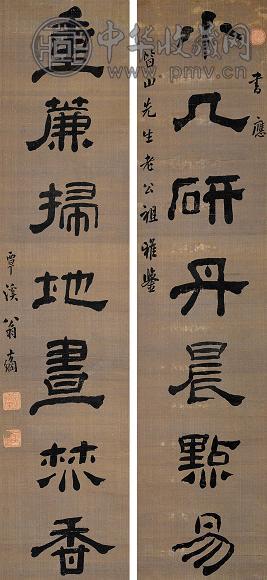 中华收藏网
www.pmv.cn
書應
皆山先生老公祖雅鑒
小几研丹晨點易
垂簾掃地晝焚香
覃溪翁方綱